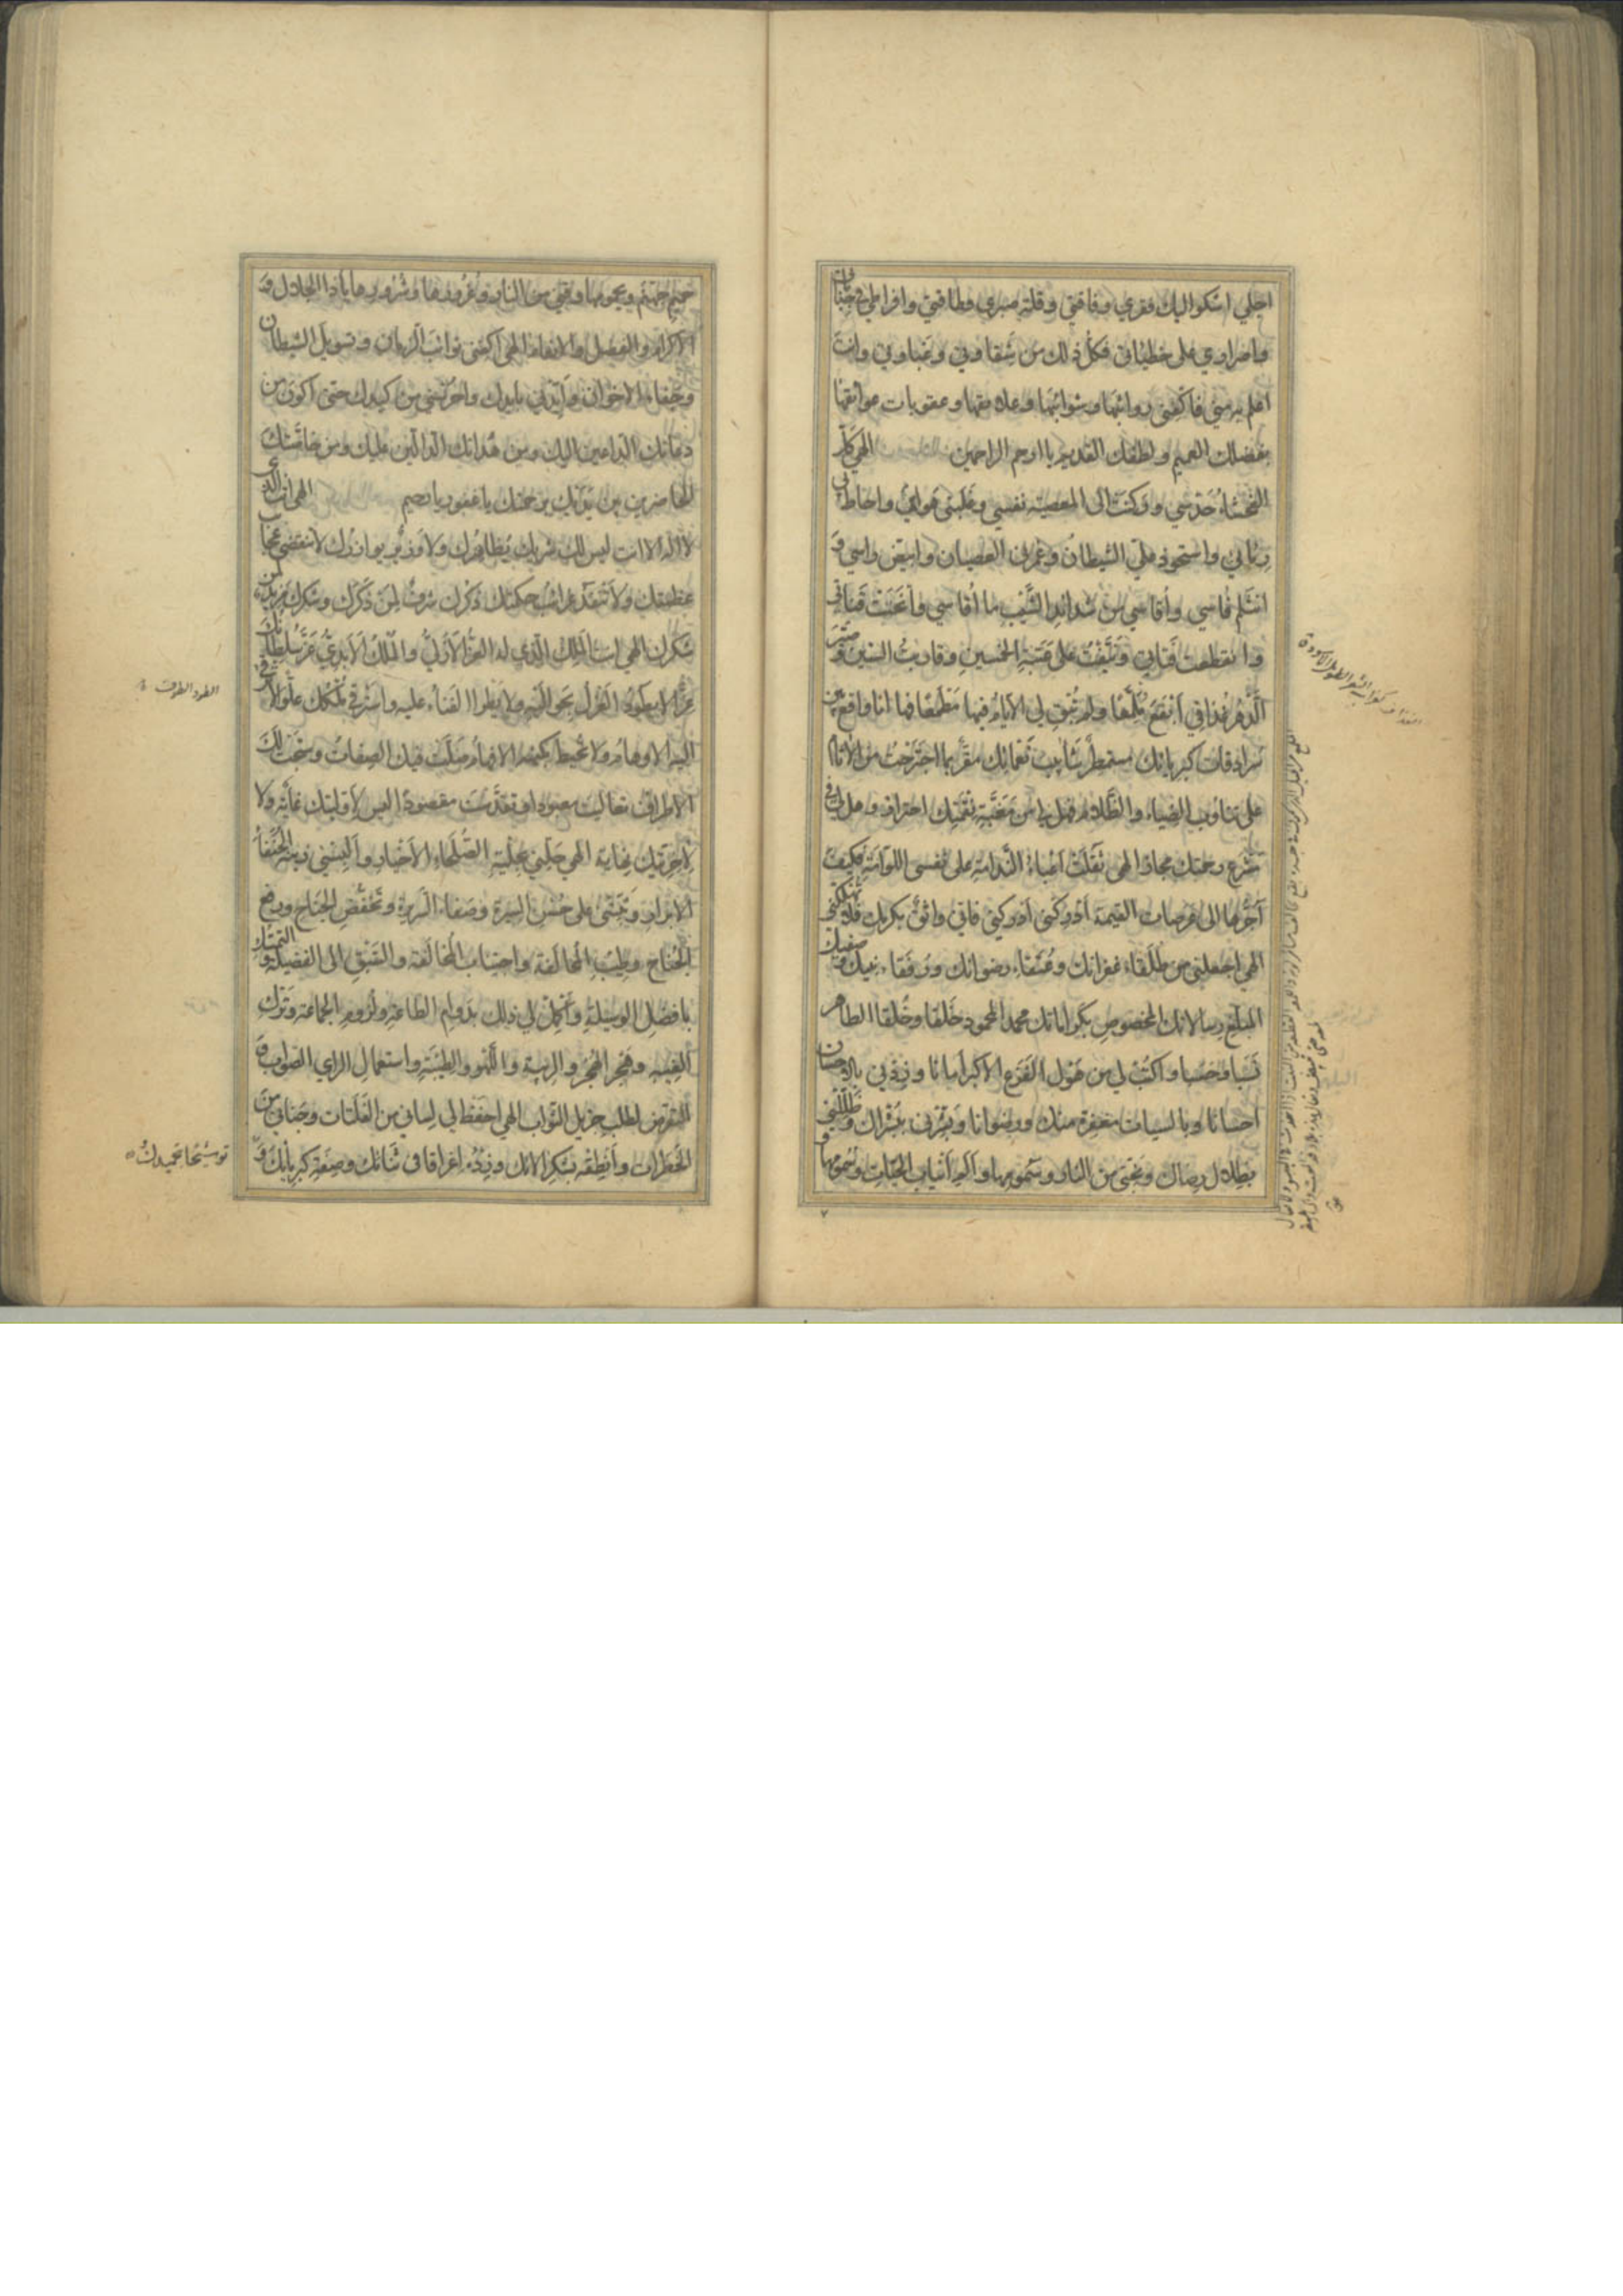 اجلي اشكوا اليك فقري وفاقتي وقلة صبري وطاقتي وافراطي في جناياتي
واصراري على خطيئاتي فكل ذلك من شقاوتي وغباوتي وانت
اعلم به مني فاكفني روائبها وشوائبها وعلايقها وعقوبات عوايقها
بفضلك العميم ولطفك القديم يا ارحم الراحمين الهي كل
الفحشاء خدشي وركنت الى المعصية نفسي وغلبني هواي واحاط بي
رياني واستحوذ علي الشيطان وغمرني العصيان وابيض راسي و
انثلم فاسي وأقاسي من شدائد الشيب ما أقاسي وانحنت قناتي
وانقطعت قناتي ونيفت على عقبة الخمسين وقاربت الستين وصير
الدهر غذافي ابقع ملمعا ولم تبق لي الايام فيها مطمعا فها انا واقع عن
سرادقات كبريائك مستمطر شآبيب نعمائك مقر بما اجترحت من الآثام
على تناوب الضياء والظلام فهل لي من مغبة نقمتك احتراف وهل لي في
مشرع رحمتك مجاز الهي ثقلت اعباء الندامة على نفسي اللوامة فكيف
أجرها الى عرصات القيمة أدركني أدركني فاني واثق بكرمك فلا تهلكني
الهي اجعلني من طلقاء غفرانك وعتقاء رضوانك ورفقاء نبيك وصفيك
المبلغ رسالاتك المخصوص بكراماتك محمد المحمود خلقا وخلقا الطاهر
نسبا وحسبا واكتب لي من هول الفزع الاكبر أمانا وزدني بالاحسان
احسانا وبالسيات مغفرة منك ورضوانا وبشرني ببشراك وظللني
بظلال رضاك ونجني من النار وسمومها وأليم أنياب الحيات وسمومها و
حميم جهنم ويحمومها وقني من النار وغرورها وشرورها ياذا الجلال و
الاكرام والفضل والانعام الهي اكفني نوائب الزمان وتسويل الشيطان
وجفاء الاخوان وأيدني بأيدك واحرسني من كيدك حتى اكون من
دعاتك الداعين اليك ومن هداتك الدالين عليك ومن خاصتك
الحاضرين بين يديك برحمتك يا غفور يا رحيم الهي انت الذي
لا اله الا انت ليس لك شريك يظاهرك ولا وزير يوازرك لا تنقضي عجايب
عظمتك ولا تنفد غرائب حكمتك ذكرك شرف لمن ذكرك وشكرك مزيد لمن
شكرك الهي انت الملك الذي له العز الازلي والملك الابدي عز سلطانك
عزا لا يطور العزل نحو اليه ولا يطرا الفناء عليه واشرف ملكك علوا لا ترقى
اليه الاوهام ولا تحيط بكنهه الافهام ضلت فيك الصفات وسبحت لك
الاطراف تعاليت معبودا وتقدست مقصودا ليس لاوليتك غاية ولا
لاخريتك نهاية الهي حلني بحلية الصلحاء الاخيار وألبسني زينة الحنفاء
الابرار وثبتني على حسن السيرة وصفاء السريرة وخفض الجناح ورفع
الجناح وطيب المخالقة واجتناب المخالفة والسبق الى الفضيلة والتمسك
بافضل الوسيلة وأكمل لي ذلك بدوام الطاعة ولزوم الجماعة وترك
الغيبة وهجر الهجر والريبة واللهو والطيبة واستعمال الراي الصواب و
التعرض لطلب جزيل الثواب الهي احفظ لي لساني من الغلتات وجناني من
الخطرات وأنطقه بشكر آلائك وزده اغراقا في ثنائك وصفة كبريائك و
توشيحا بتحميدك